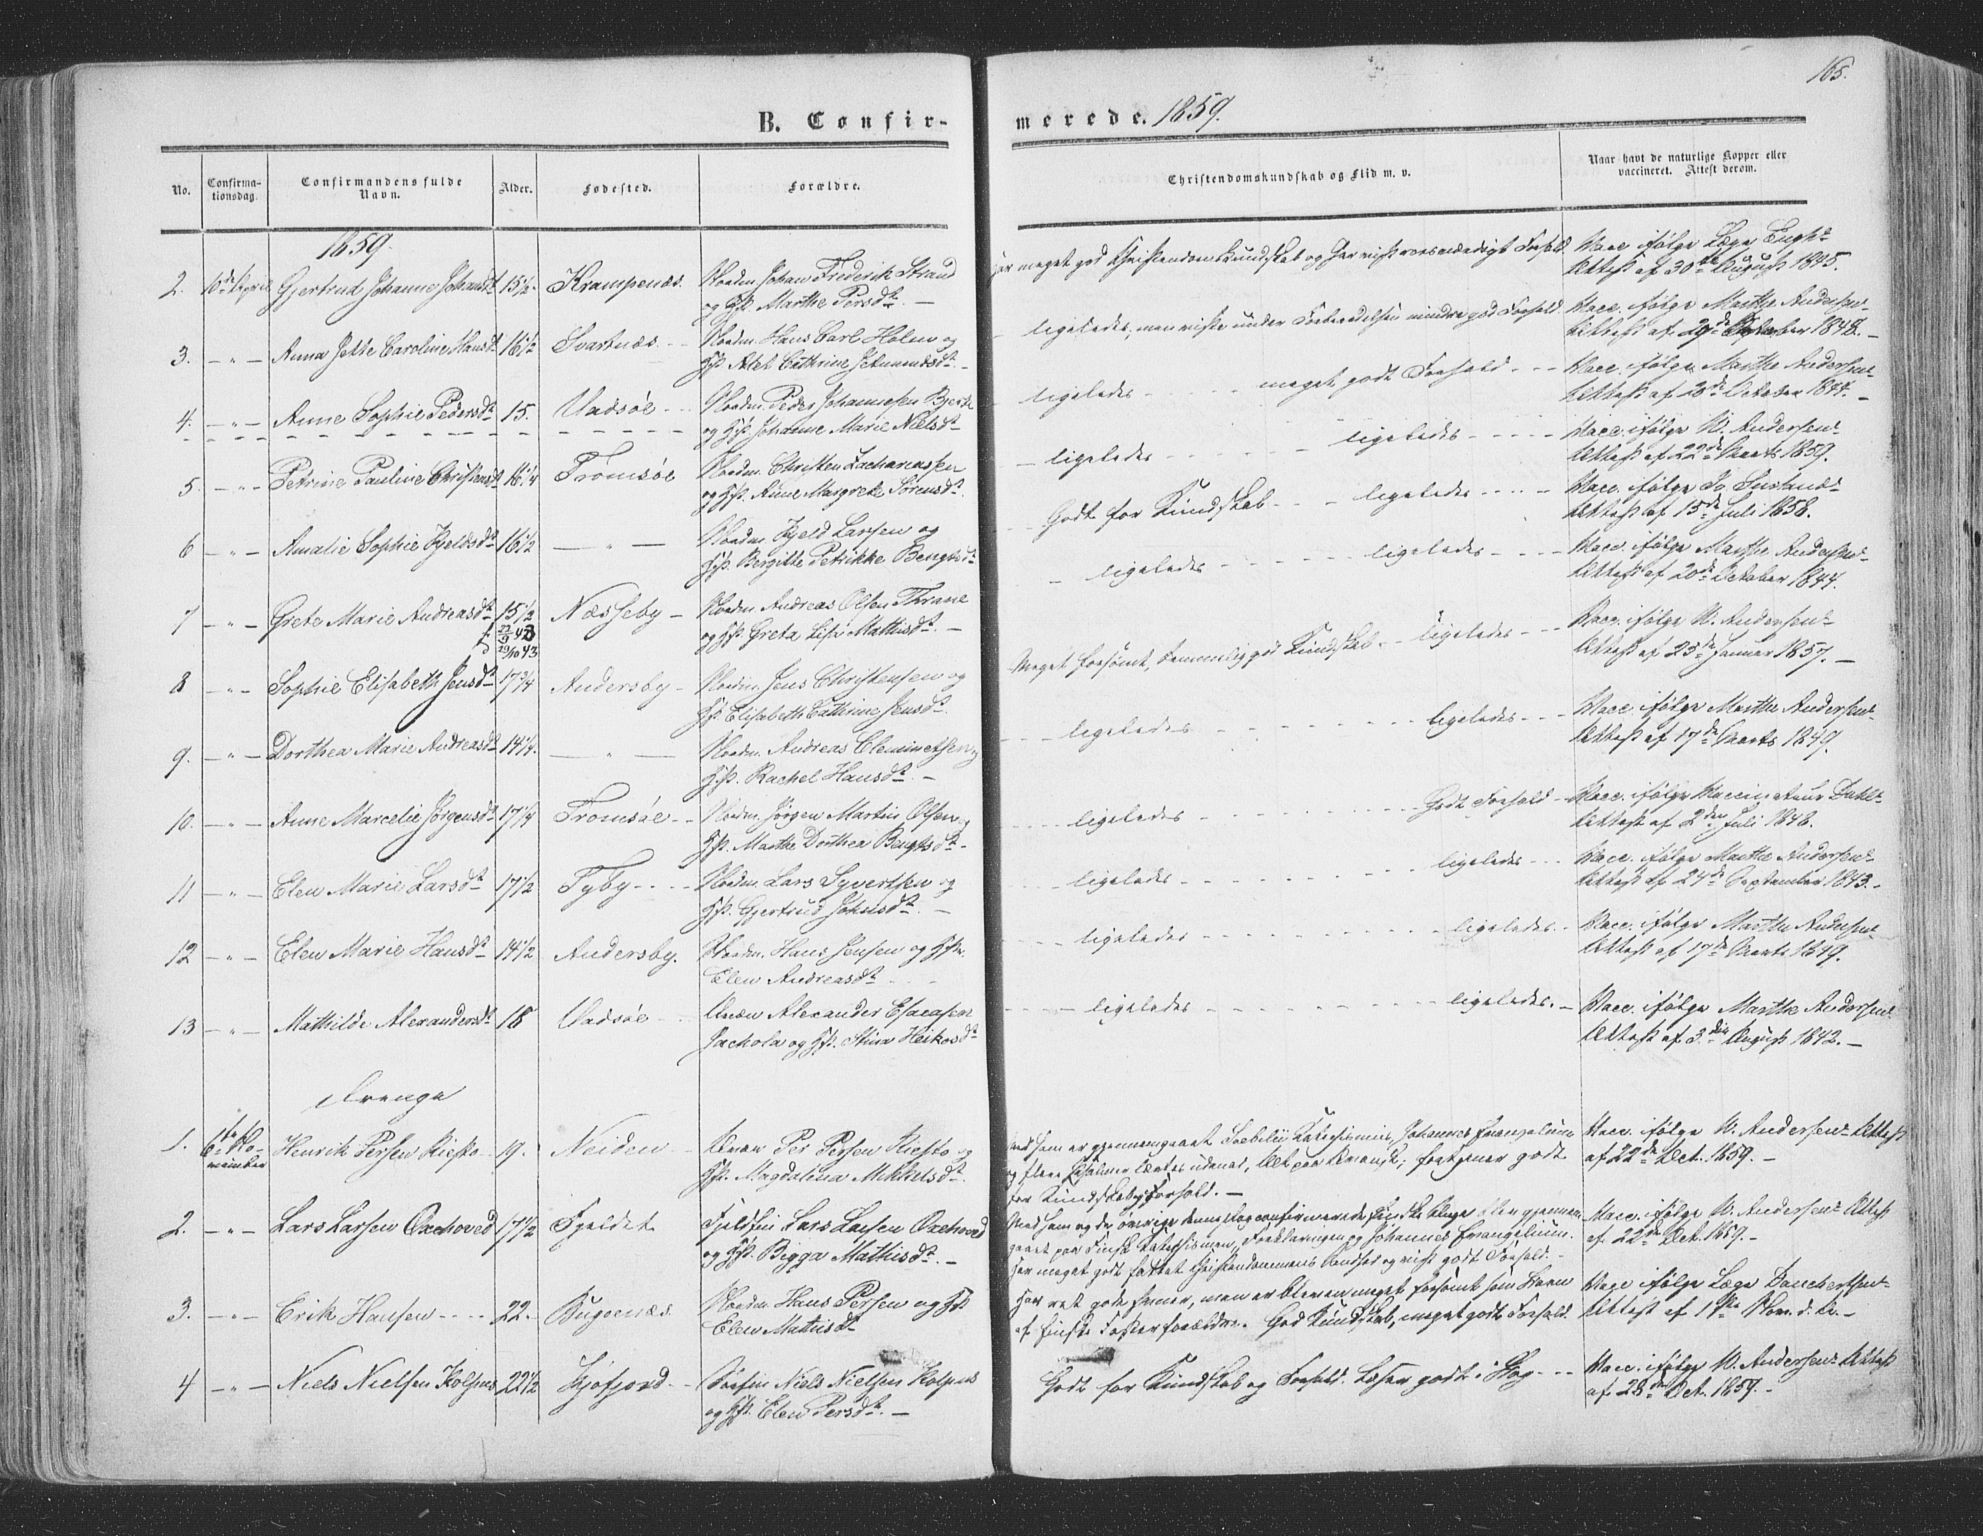 165.
B. Confir-
merede. 1859.
No.
Confirma-
tionsdag.
Confirmandens fulde
Navn.
Alder.
Fødested.
Forældre.
Christendomskundskab og Flid m. v.
Naar havt de naturlige Kopper eller
vaccineret. Attest derom.
1859.
2. 10de April Gjertrud Johanne Johansdt 15 1/2 Krampenæs. Nordm. Johan Frederik Strand
og Hst. Marthe Persdt. —
har meget god Christendomskundskab og har vist Forhold
Vacc. ifølge Læge
Attest af 30te August 1845.
3. — " — Anna Jette Caroline Hansdt 16 1/2 Svartnæs. Nordm. Hans Carl Holm og
Hst. Cathrine
— ligeledes, men viste under Forberedelsen mindre god Forhold
Vacc. ifølge Marthe Andersens
Attest af October 1848. —
4. — " — Anne Sophie Pedersdt 15. Vadsöe Nordm. Peder Johannesen
og Hst. Johanne Marie Nielsdt
— ligeledes meget godt Forhold
Vacc. ifølge Marthe Andersens
Attest af 20de October 1844. —
5 — " — Petrine Pauline Christensdt 16 1/4 Tromsöe Nordm. Christen Zachariassen
og Hst. Anne Margrete Sörensdt.
— ligeledes ligeledes
Vacc. ifølge W. Andersens
Attest af 22de Marts 1859.
6 — " — Amalie Sophie Kjeldsdt 16 1/2 — " — Nordm. Kjeld Larsen og
Hst. Bergitte Petrikke Bengtsdt
Godt for Kundskab ligeledes
Vacc. ifølge
Attest af 15de Juli 1858.
7 — " — Grete Marie Andreasdt 15 1/2 Næsseby — Nordm. Andreas Olsen Thrane
og Hst. Greta Lisa Mathisdt. —
— ligeledes ligeledes
Vacc. ifølge Marthe Andersens
Attest af 20de October 1844.
8 — " — Sophie Elisabeth Jensdt 17 3/4 Andersby — Nordm. Jens Christensen og
Hst. Elisabeth Cathrine Jensdt.
Meget forsömt, temmelig god Kundskab — ligeledes
Vacc. ifølge W. Andersens
Attest af 23de Januar 1857. —
9. — " — Dorthea Marie Andreasdt 14 1/4. — " — Nordm. Andreas Clemmetsen og
Hst. Rachel Hansdt. —
ligeledes ligeledes
Vacc. ifølge Marthe Andersens
Attest af 17de Marts 1849.
10. — " — Anne Marcelie Jörgensdt 17 1/4 Tromsöe Nordm. Jörgen Martin Olsen og
Hst. Marthe Dorthea Bengtsdt.
ligeledes Godt Forhold
Vacc. ifølge Vaccinateur Dahls
Attest af 2den Juli 1848.
11 — " — Elen Marie Larsdt 17 1/2 Tyby Nordm. Lars Syvertsen og
Hst. Gjertrud Johnsdt. —
ligeledes ligeledes
Vacc. ifølge Marthe Andersens
Attest af 24de September 1843. —
12 — " — Elen Marie Hansdt 14 1/2 Andersby. Nordm. Hans Jensen og Hst.
Elen Andreasdt
ligeledes ligeledes
Vacc. ifølge Marthe Andersens
Attest af 17de Marts 1849.
13 — " — Mathilde Alexandersdt 18 Vadsöe Qvæn Alexander Esaiasen
Jachola og Hst. Stina Heikosdt
ligeledes ligeledes. —
Vacc. ifølge Marthe Andersens
Attest af 3die August 1842. —
Drenge
1. 6te No-
vember Henrik Persen Kiesto 19. Neiden Qvæn Per Persen Kiesto og
Hst. Magdalina Mikkelsdt.
og flere Psalmer lærte udenad, Alt paa Qvænsk; fortjener godt
for Kundskab og Forhold. —
Vacc. ifølge W. Andersens Attest
af 22de Oct. 1859. —
2. — " — Lars Larsen Oxehoved 17 1/2 Fjeldet Fjeldfin Lars Larsen Oxehoved
og Hst. Bigga Mathisdt. —
gaaet paa Finsk Katechismen, Forklaringen og Johannes Evangelium.
har meget godt fattet Christendommens Indhold og vist godt Forhold. —
Vacc. ifølge W. Andersens Attest
af 22de Oct. 1859. —
3. — " — Erik Hansen 22. Bugönæs. Nordm. Hans Persen og Hst.
Elen Mathisdt
har ret gode Evner, men er bleven meget forsömt som Barn
af finske Fosterforældre. God Kundskab, meget godt Forhold.
Vacc. ifølge Læge Danchertsens
Attest af 1ste Nov. d. A. —
4 — " — Niels Nielsen Kolpus 22 1/2 Kjöfjord Söefin Niels Nielsen Kolpus
og Hst. Elen Persdt. —
Godt for Kundskab og Forhold. Læser godt i Bog
Vacc. ifølge W. Andersens Attest
af 28de Oct. 1859. —